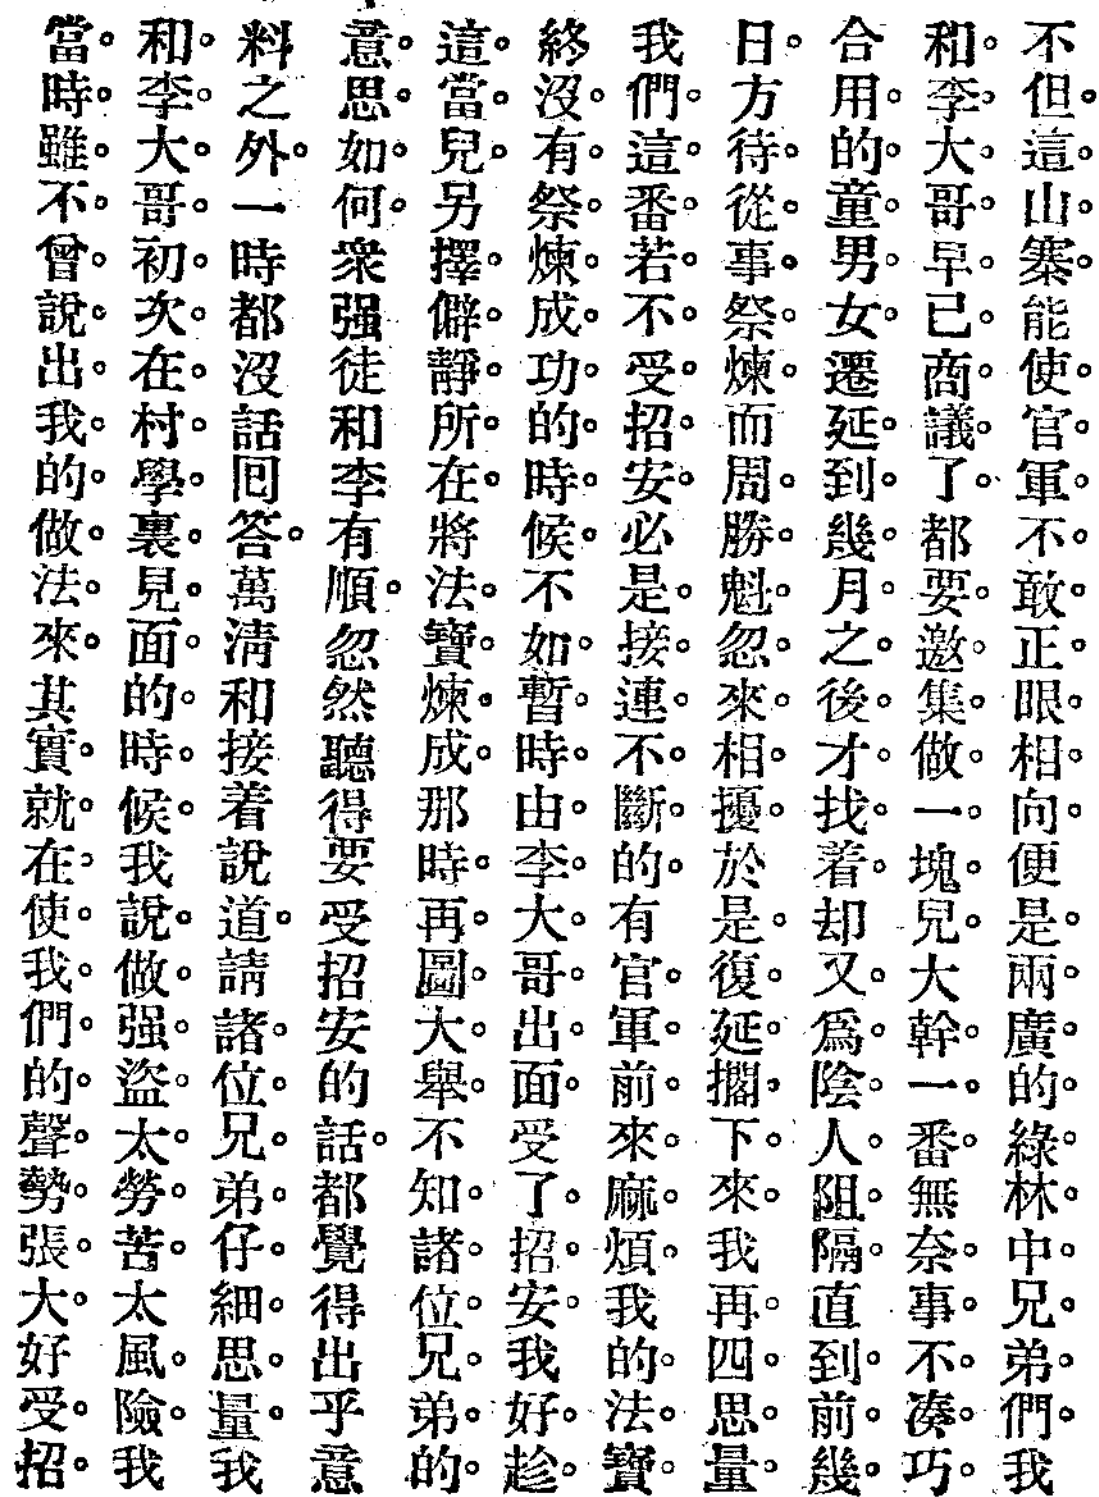 不但。這。山寨。能使。官軍。不。敢。正。眼。相。向。便是。兩。廣。的。綠。林。中。兄。弟。們。我
和。李。大。哥。早。已。商。議。了。都要。邀。集。做。一。塊。兒。大幹。一。番。無奈。事。不。湊。巧。
合用。的。童。男。女。遷延。到。幾。月。之。後。才。找。着。却又。爲。陰。人。阻。隔。直到。前。幾。
日。方待。從。事。祭。煉。而周。勝。魁。忽。來。相。擾。於是。復。延。擱。下。來。我再。四。思。量。
我們。這。番。若。不。受。招。安。必是。接。連。不。斷。的。有官。軍。前。來。麻。煩。我的。法。寶。
終沒。有。祭。煉。成。功。的。時。候。不如。暫。時。由。李。大。哥。出。面。受了。招。安。我。好。趁。
這。當。兒。另擇。僻。靜。所。在。將法。寶。煉。成。那時。再。圖。大。舉。不知。諸。位。兄。弟。的。
意。思。如。何。衆强徒和李有順。忽然聽得要受招安的話。都覺得出乎意
料之外。一時都沒話回答。萬淸和接着說道。請諸。位。兄。弟。仔。細。思。量。我
和。李。大。哥。初。次。在。村。學。裏。見。面。的。時。候。我說。做。强。盜。太。勞。苦。太風。險。我
當。時。雖。不。曾。說。出。我。的。做。法。來。其實。就。在。使。我。們。的。聲。勢。張。大。好受。招。